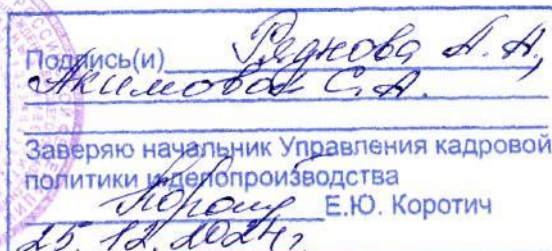 Подпись(и) А. А.,
Акимова С. А.
Заверяю начальник Управления кадровой
политики и делопроизводства
Е.Ю. Коротич
25.12.2024г.